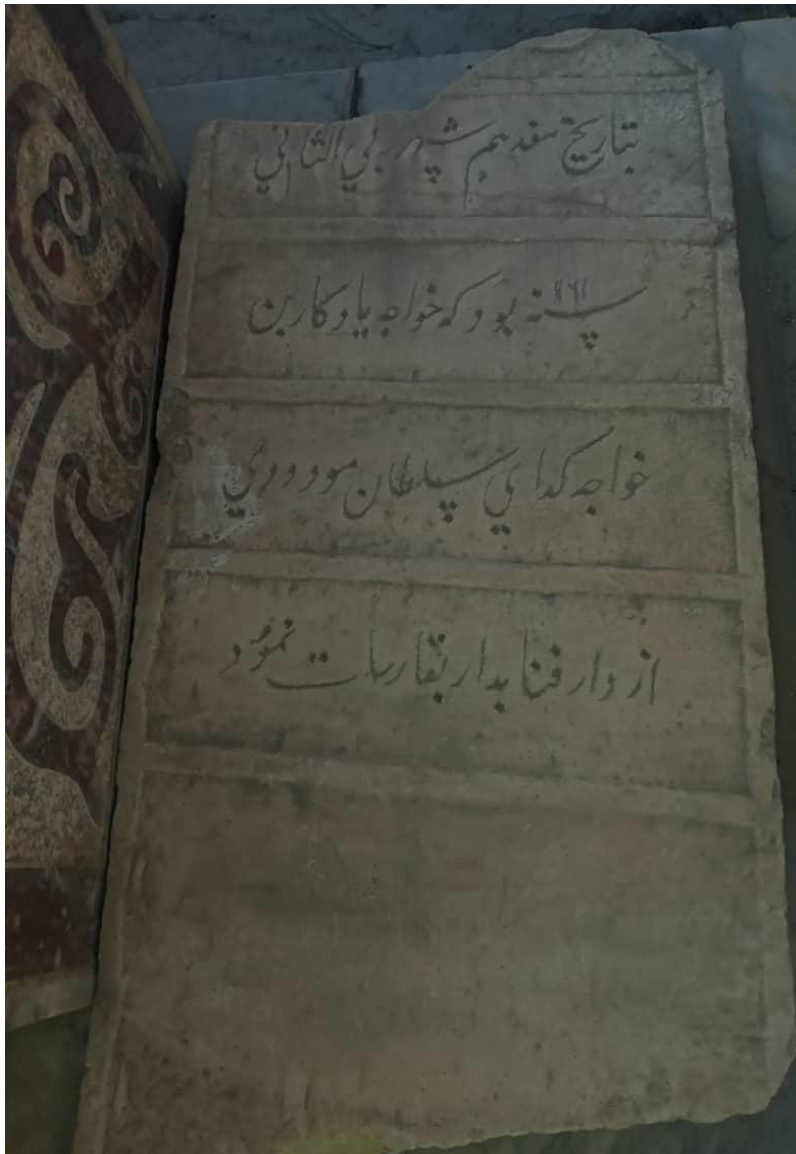 بتاريخ هفدهم شهر ربي الثاني
سنه ١١٦١ بود كه خواجه يادكار بن
خواجه كداي سلطان مودودي
از دار فنا بدار بقا رسات نمود